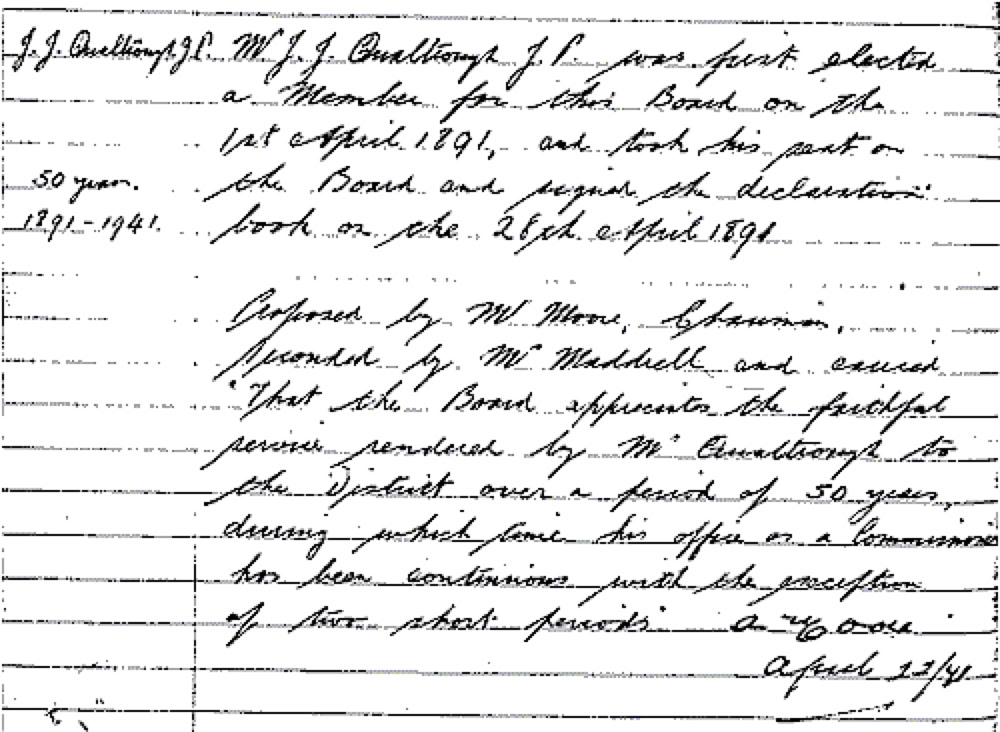 J. J. Qualtrough J.P. Mr J. J. Qualtrough J.P. was first elected
a Member for this Board on the
1st April 1891, and took his seat on
50 years. the Board and signed the declaration
1891-1941. book on the 28th April 1891
Proposed by Mr Moore, Chairman,
seconded by Mr Maddrell and carried
"That the Board appreciates the faithful
service rendered by Mr Qualtrough to
the District over a period of 50 years,
during which time his office as a Commissioner
has been continuous with the exception
of two short periods" Moore
April 22/41